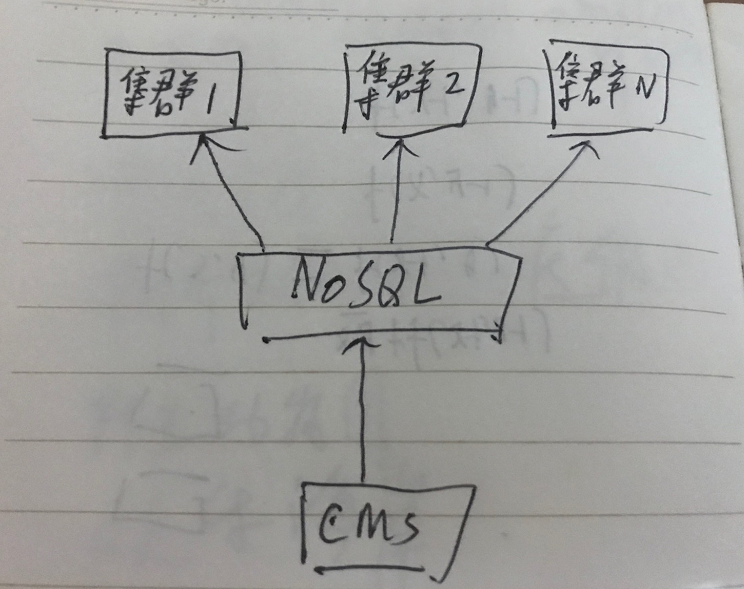 集群1 集群2 集群N
NoSQL
CMS